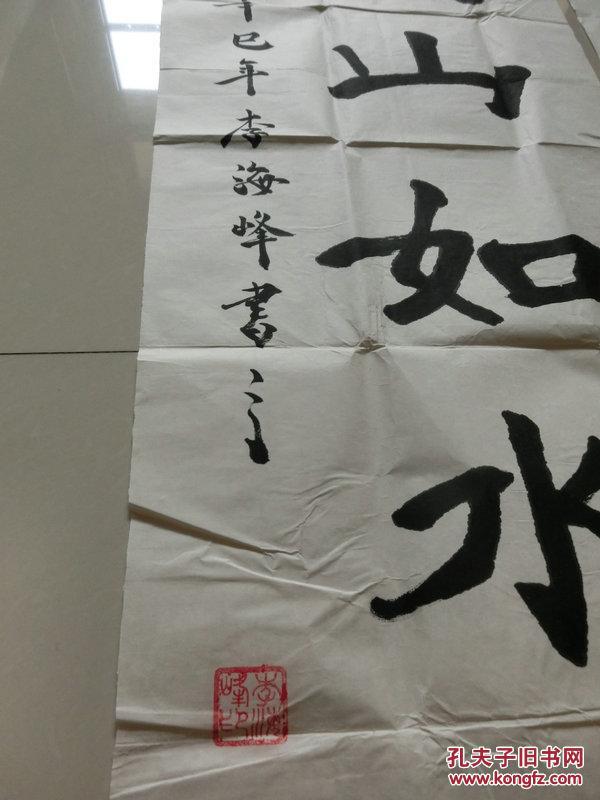 山如水
辛巳年李海峰书之
李海峰印
孔夫子旧书网
www.kongfz.com